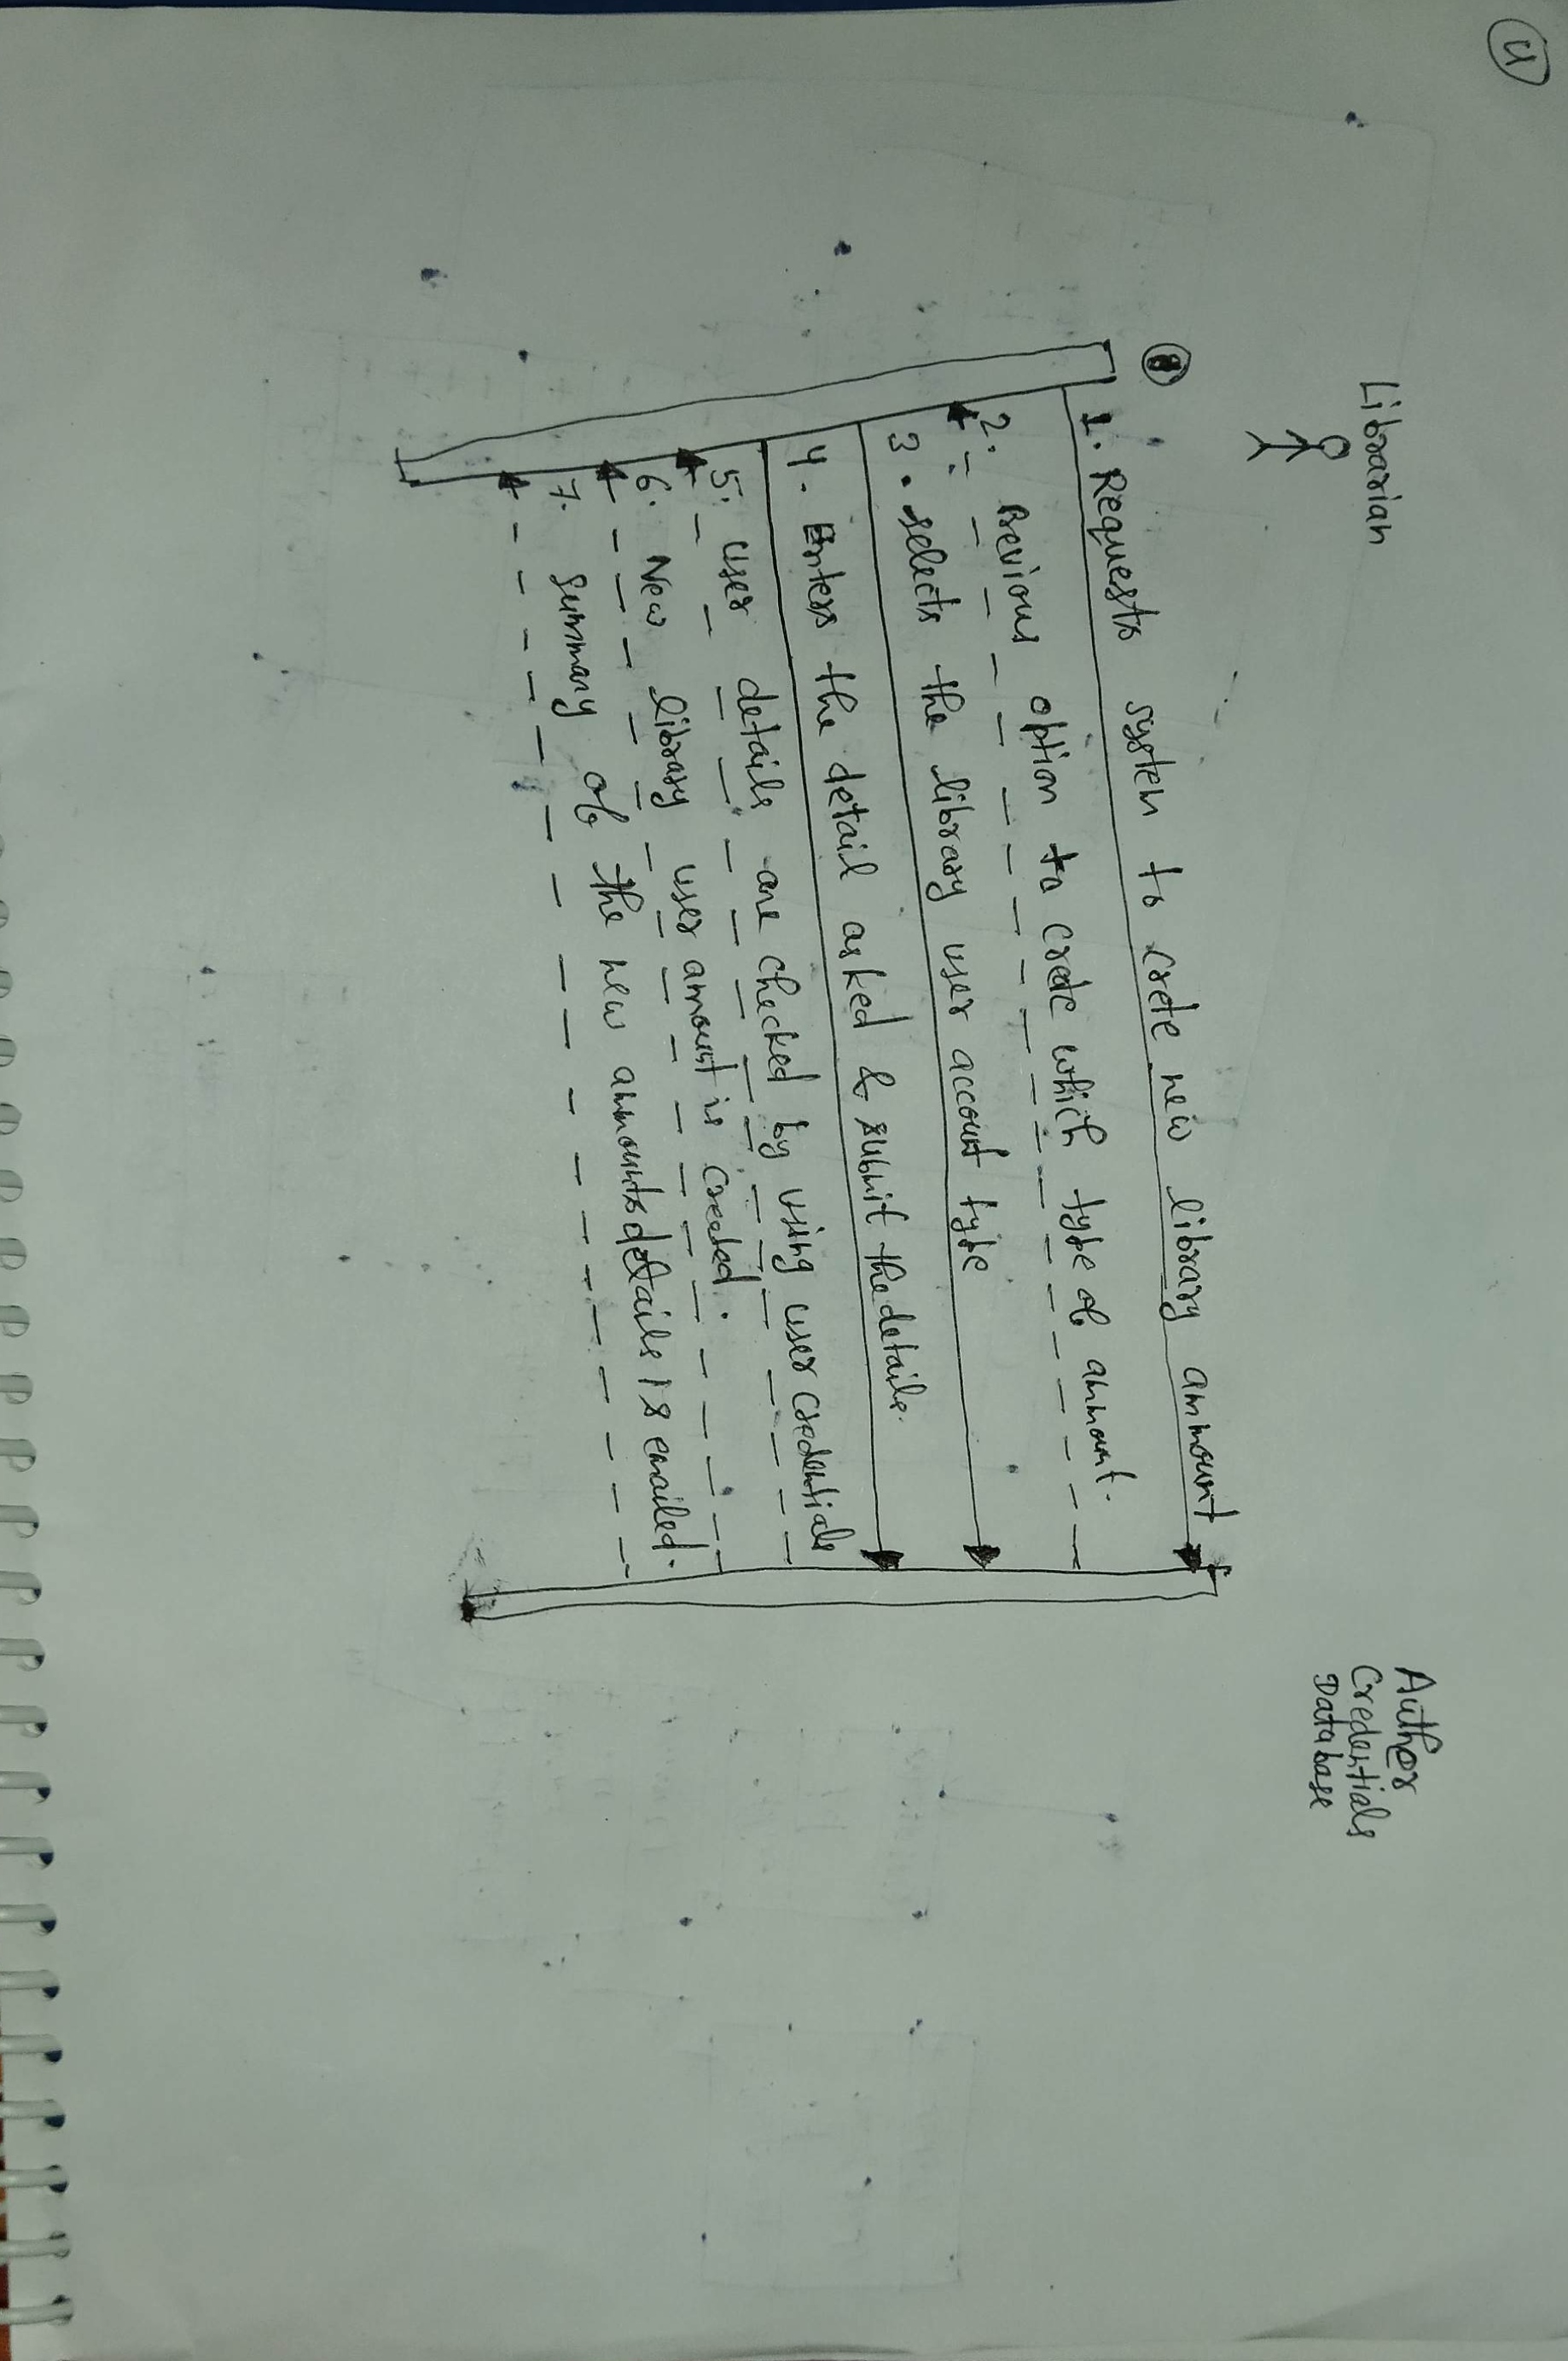 4
Librarian
Auther
Credentials
Database
1. Requests system to crete new library ammount
2. Previous option to crete which type of ammount.
3. selects the library user account type
4. Enters the detail asked & submit the details.
5. user details are checked by using user credentials
6. New library user amount is created.
7. Summary of the new ammounts details is emailed.